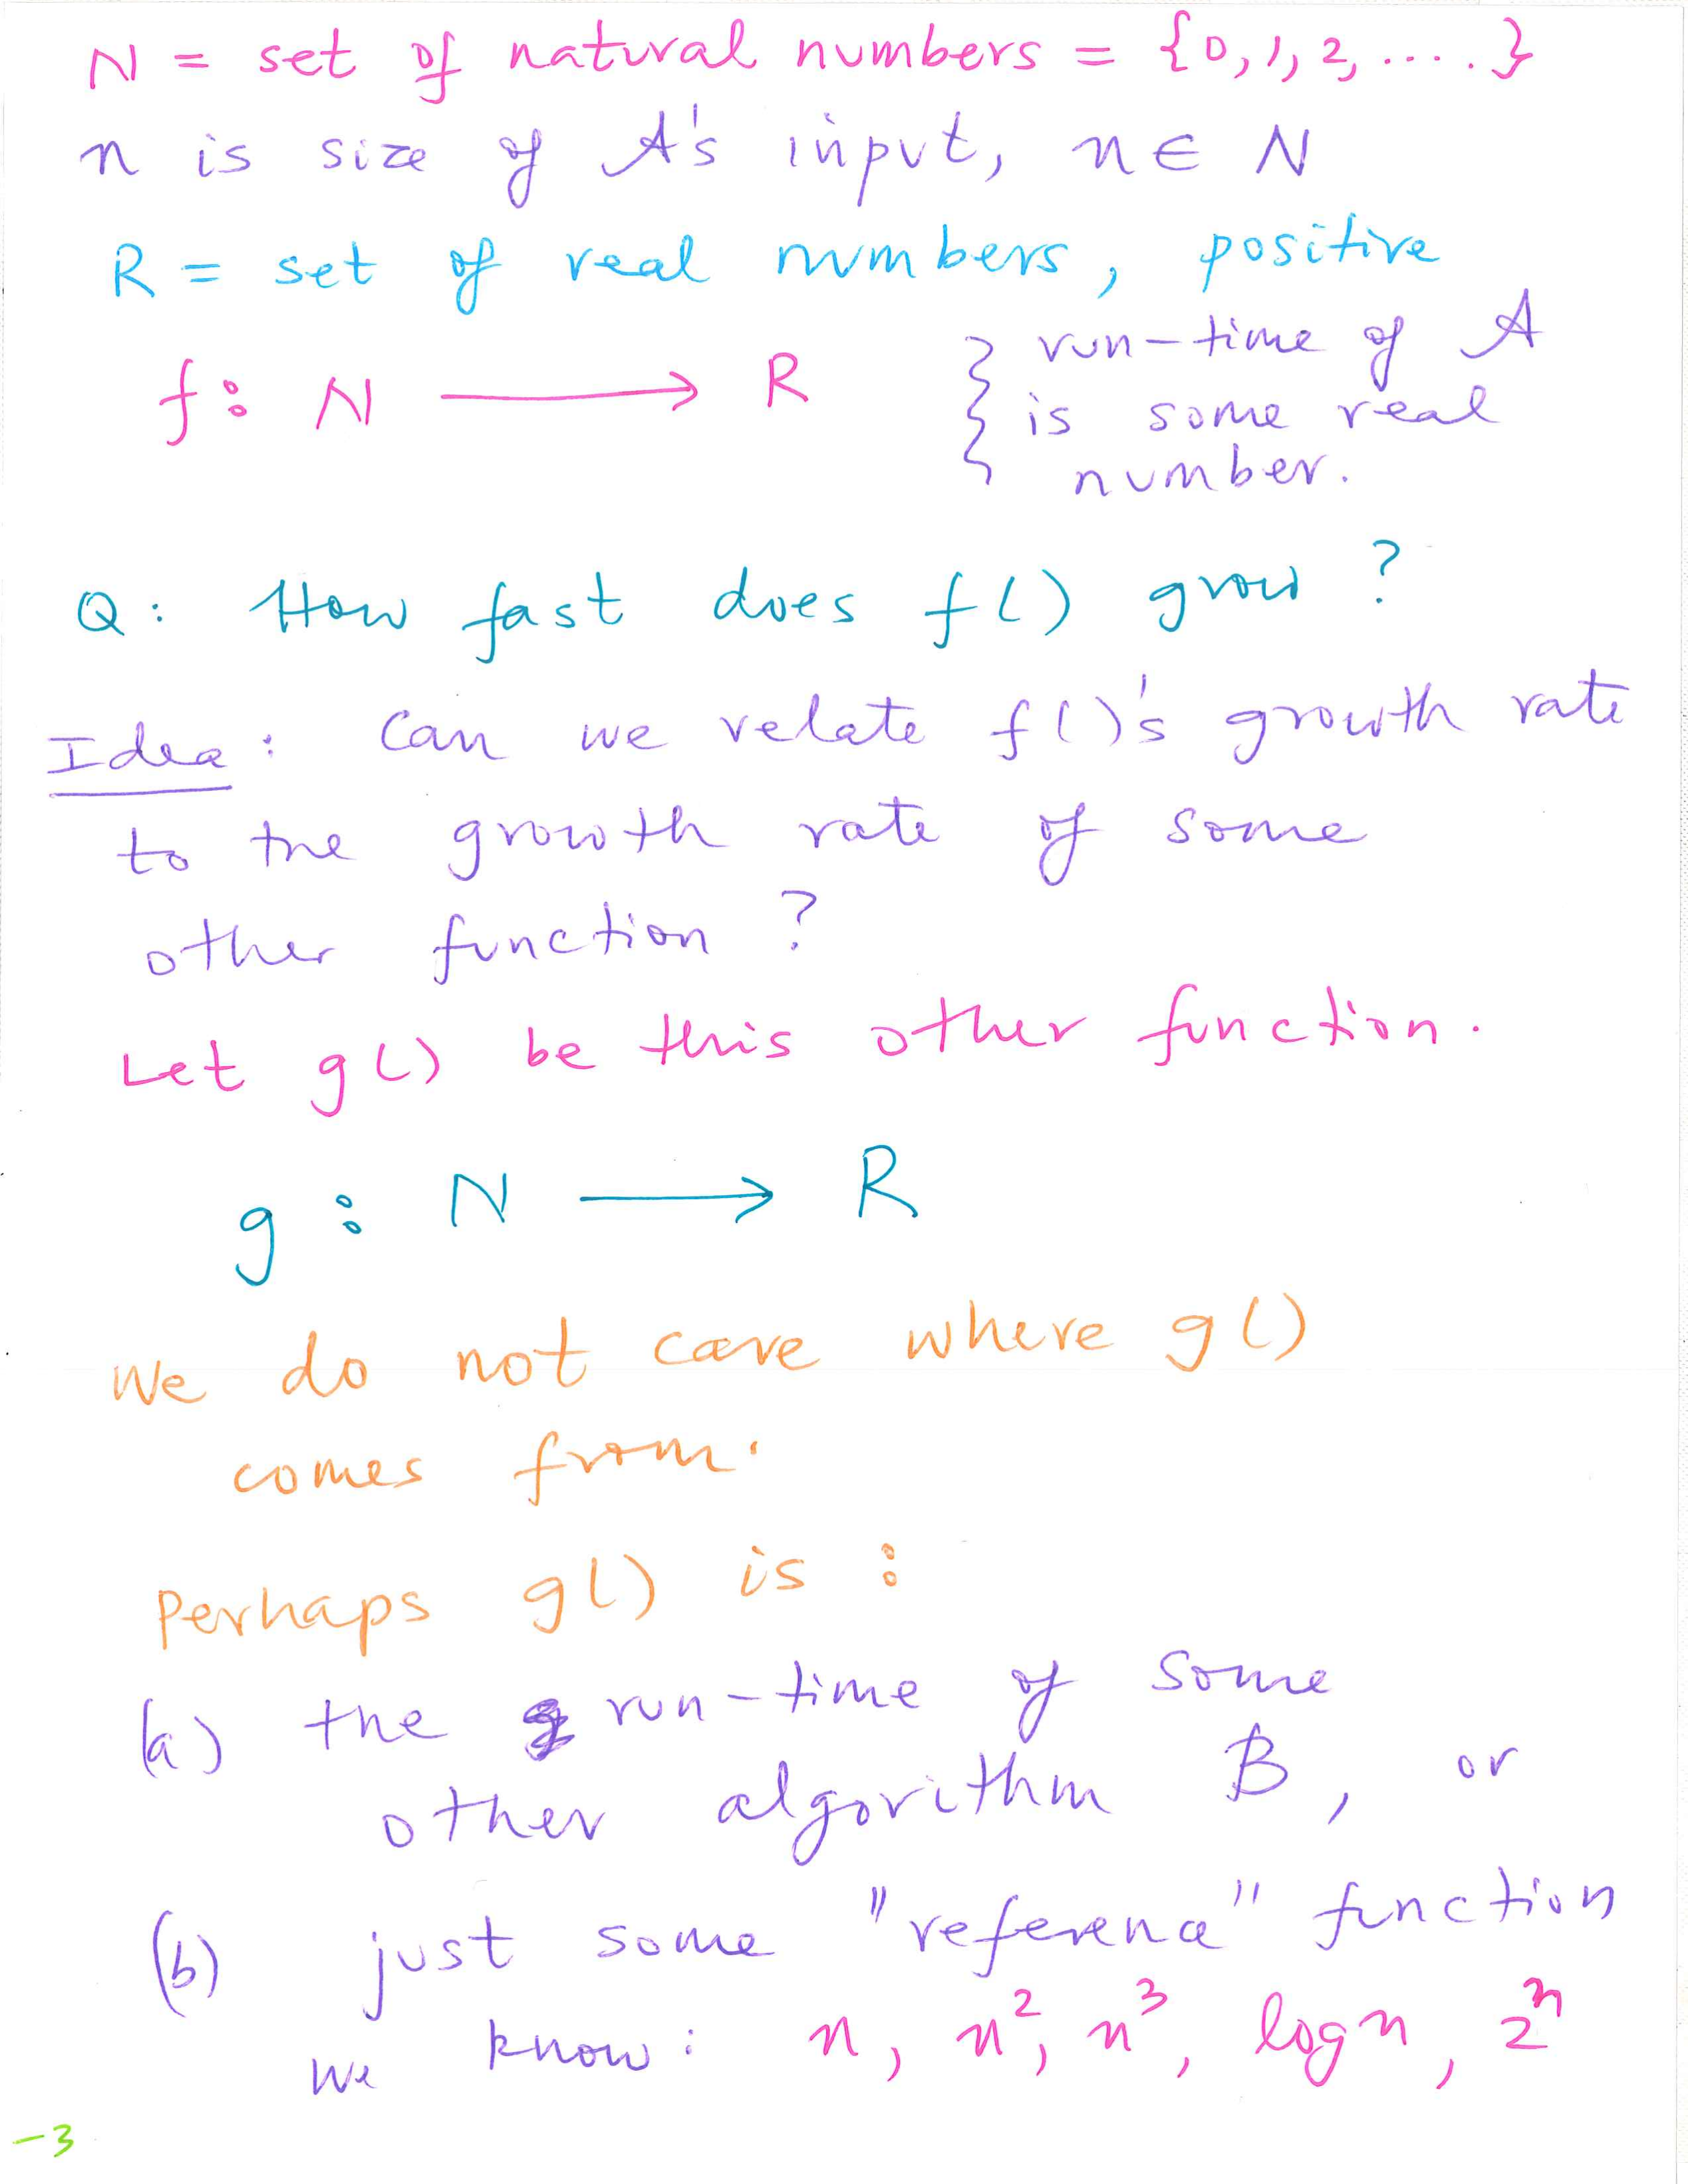 N = set of natural numbers = {0, 1, 2, ....}
n is size of A's input, n ∈ N
R = set of real numbers, positive
f: N → R } run-time of A
} is some real
number.
Q: How fast does f() grow?
Idea: Can we relate f()'s growth rate
to the growth rate of some
other function?
Let g() be this other function.
g: N → R
We do not care where g()
comes from.
Perhaps g() is:
(a) the run-time of some
other algorithm B, or
(b) just some "reference" function
we know: n, n², n³, log n, 2ⁿ
-3